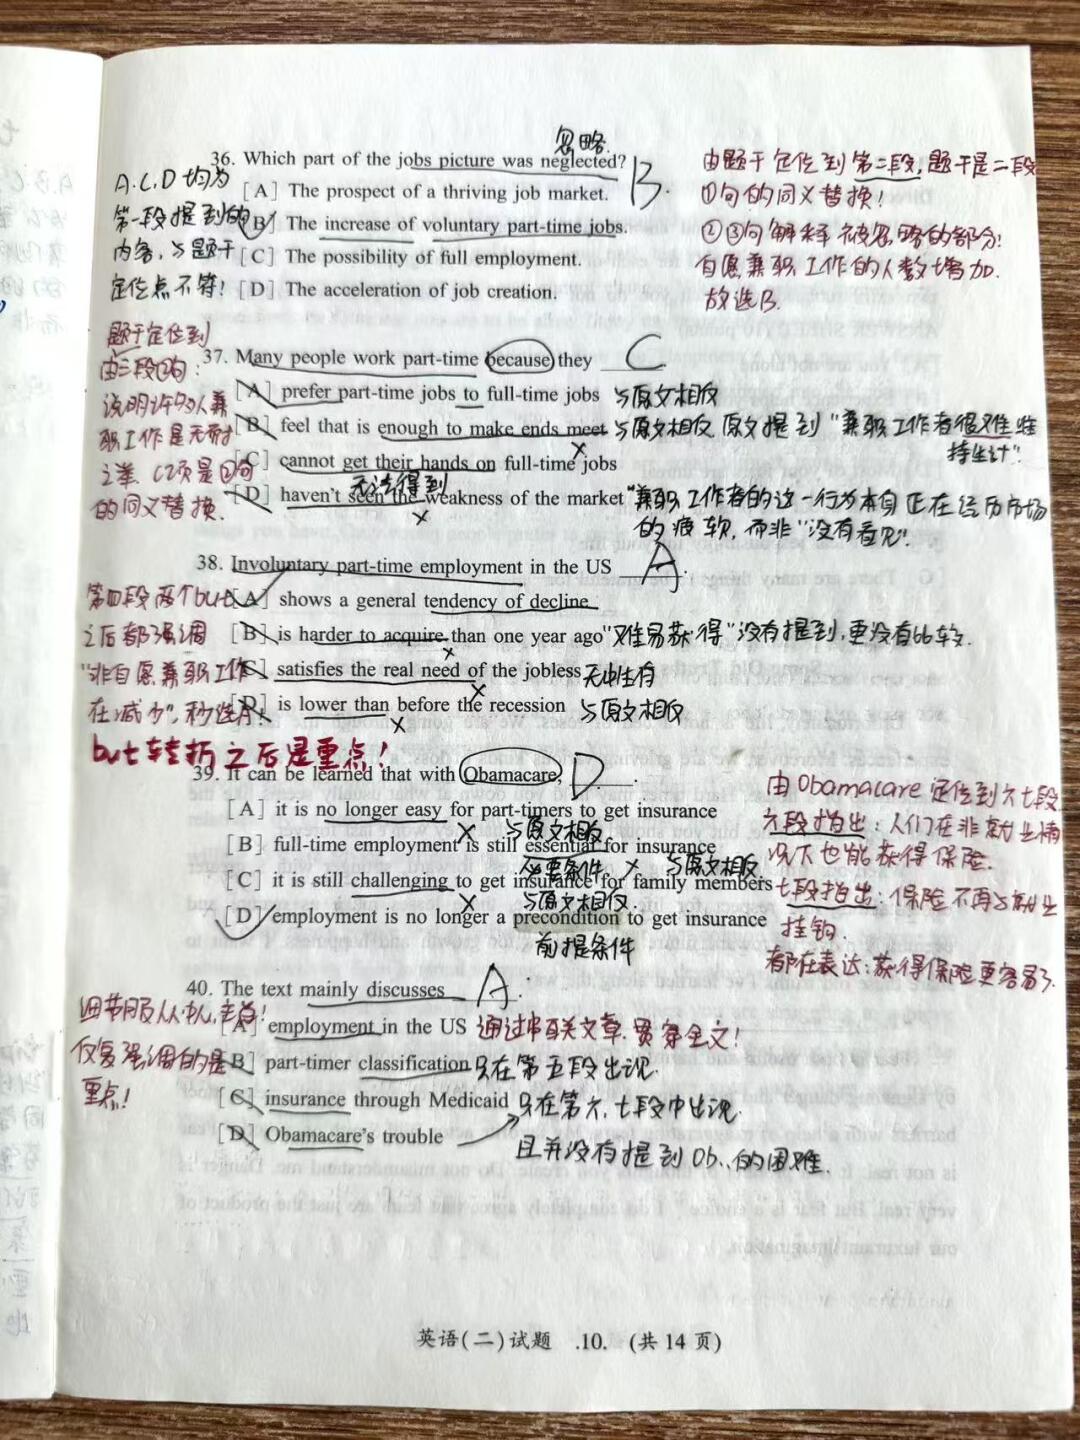 忽略.
36. Which part of the jobs picture was neglected? B.
[A] The prospect of a thriving job market.
[B] The increase of voluntary part-time jobs.
[C] The possibility of full employment.
[D] The acceleration of job creation.
A.C.D均为
第一段提到的
内容,与题干
定位点不符!
由题干定位到第二段,题干是二段
①句的同义替换!
②③句解释被忽略的部分:
自愿兼职工作的人数增加.
故选B.
37. Many people work part-time because they C
[A] prefer part-time jobs to full-time jobs 与原文相反
[B] feel that is enough to make ends meet 与原文相反,原文提到"兼职工作者很难维
持生计".
[C] cannot get their hands on full-time jobs
无法得到
[D] haven't seen the weakness of the market "兼职工作者的这一行为本身正在经历市场
的疲软,而非"没有看见".
题干定位到
由三段②句:
说明许多人兼
职工作是无奈
之举. C项是②句
的同义替换.
38. Involuntary part-time employment in the US A.
[A] shows a general tendency of decline
[B] is harder to acquire than one year ago "难易获得"没有提到,更没有比较.
[C] satisfies the real need of the jobless 无中生有
[D] is lower than before the recession 与原文相反
第四段两个but
之后都强调
"非自愿兼职工作
在减少",秒选A!
but转折之后是重点!
39. It can be learned that with Obamacare, D.
[A] it is no longer easy for part-timers to get insurance
与原文相反
[B] full-employment is still essential for insurance
必要条件 与原文相反.
[C] it is still challenging to get insurance for family members
与原文相反.
[D] employment is no longer a precondition to get insurance
前提条件
由Obamacare定位到六七段
六段指出:人们在非就业情
况下也能获得保险.
七段指出:保险不再与就业
挂钩.
都在表达:获得保险更容易了.
40. The text mainly discusses A.
[A] employment in the US 通过串联文章,贯穿全文!
[B] part-timer classification 只在第五段出现.
[C] insurance through Medicaid 只在第六、七段中出现
[D] Obamacare's trouble
且并没有提到Ob..的困难.
细节服从中心,主旨!
反复强调的是
重点!
英语(二)试题 .10. (共14页)